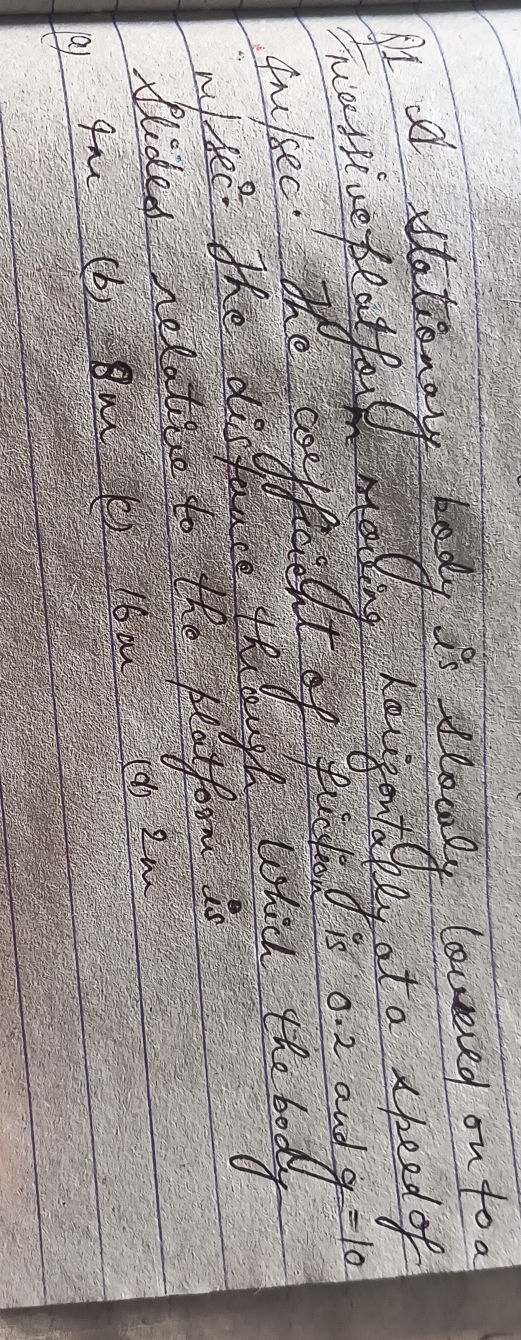 Q1 A stationary body is slowly lowered on to a
massive platform moving horizontally at a speed of
4m/sec. The coefficient of friction is 0.2 and g = 10
m/sec². The distance through which the body
slides relative to the platform is
(a) 4m (b) 8m (c) 16m (d) 2m